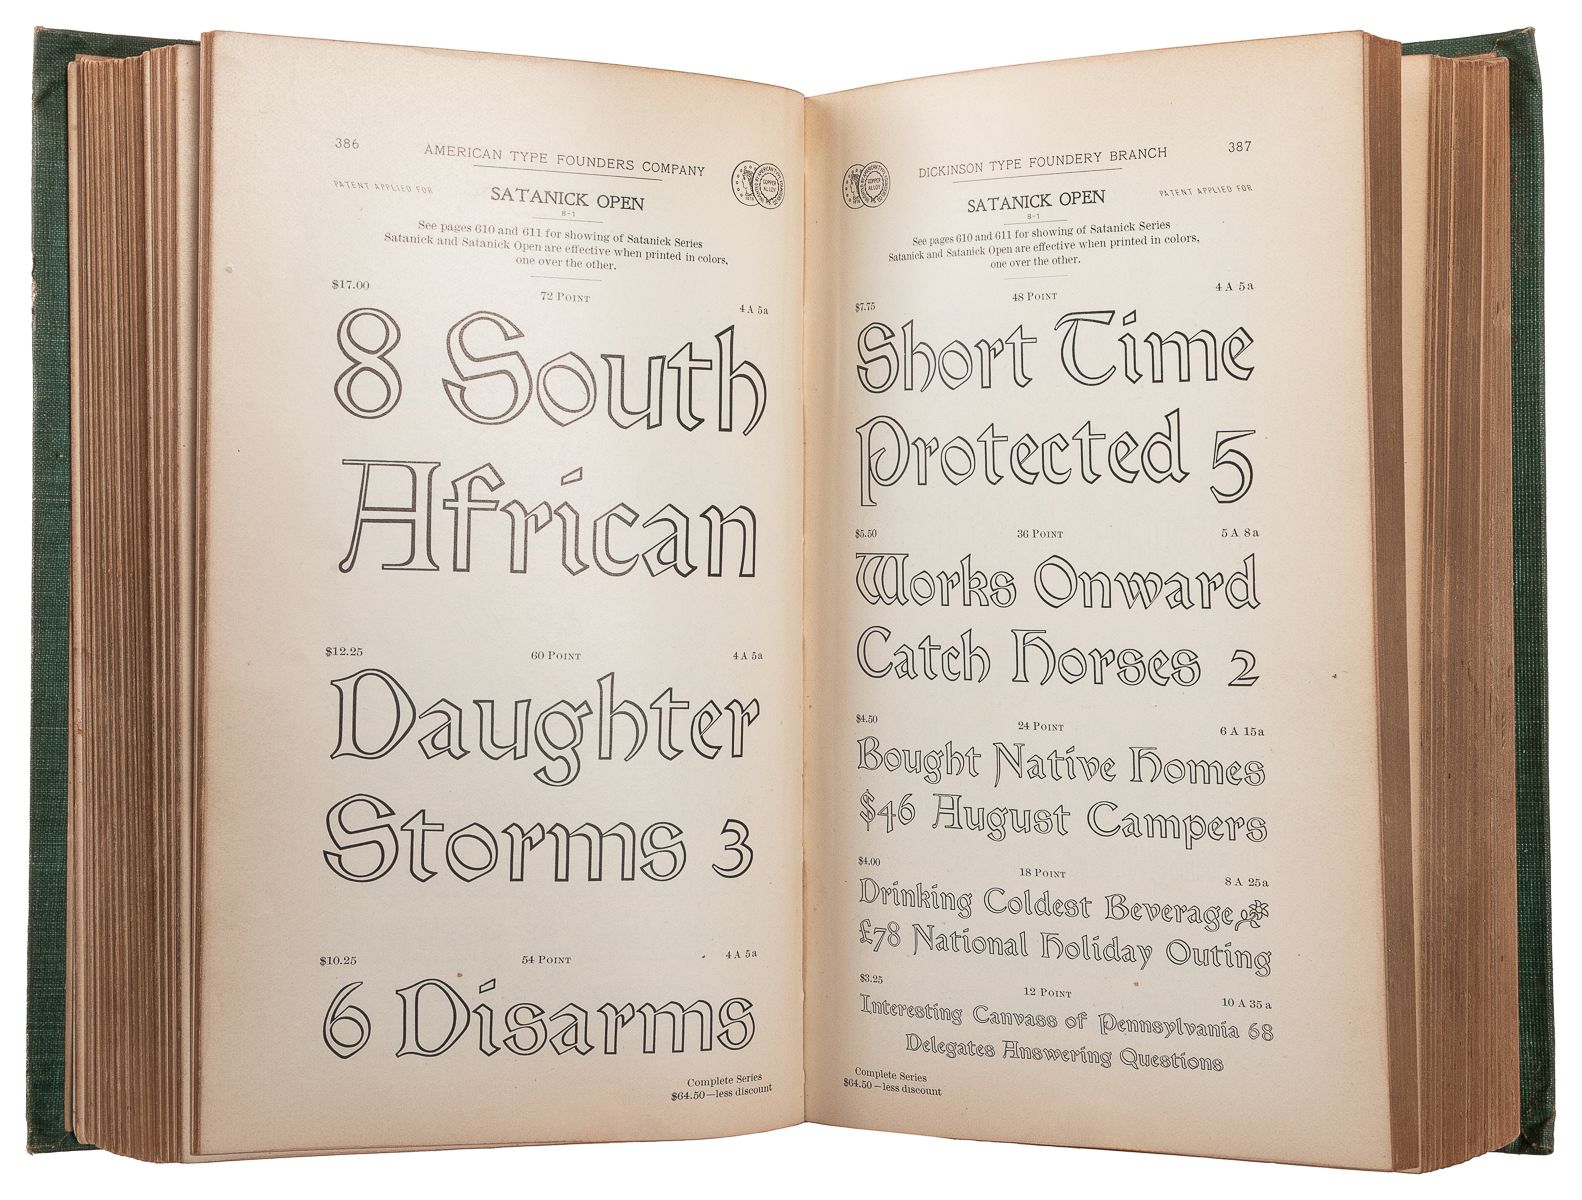 386
AMERICAN TYPE FOUNDERS COMPANY
PATENT APPLIED FOR
SATANICK OPEN
8-1
See pages 610 and 611 for showing of Satanick Series
Satanick and Satanick Open are effective when printed in colors,
one over the other.
$17.00
72 POINT
4 A 5a
8 South
African
$12.25
60 POINT
4 A 5a
Daughter
Storms 3
$10.25
54 POINT
4 A 5a
6 Disarms
Complete Series
$64.50—less discount
DICKINSON TYPE FOUNDERY BRANCH
387
COPPER
ALLOY
SATANICK OPEN
PATENT APPLIED FOR
8-1
See pages 610 and 611 for showing of Satanick Series
Satanick and Satanick Open are effective when printed in colors,
one over the other.
$7.75
48 POINT
4 A 5a
Short Time
Protected 5
$5.50
36 POINT
5 A 8a
Works Onward
Catch Horses 2
$4.50
24 POINT
6 A 15a
Bought Native Homes
$46 August Campers
$4.00
18 POINT
8 A 25a
Drinking Coldest Beverage
£78 National Holiday Outing
$3.25
12 POINT
10 A 35a
Interesting Canvass of Pennsylvania 68
Delegates Answering Questions
Complete Series
$64.50—less discount